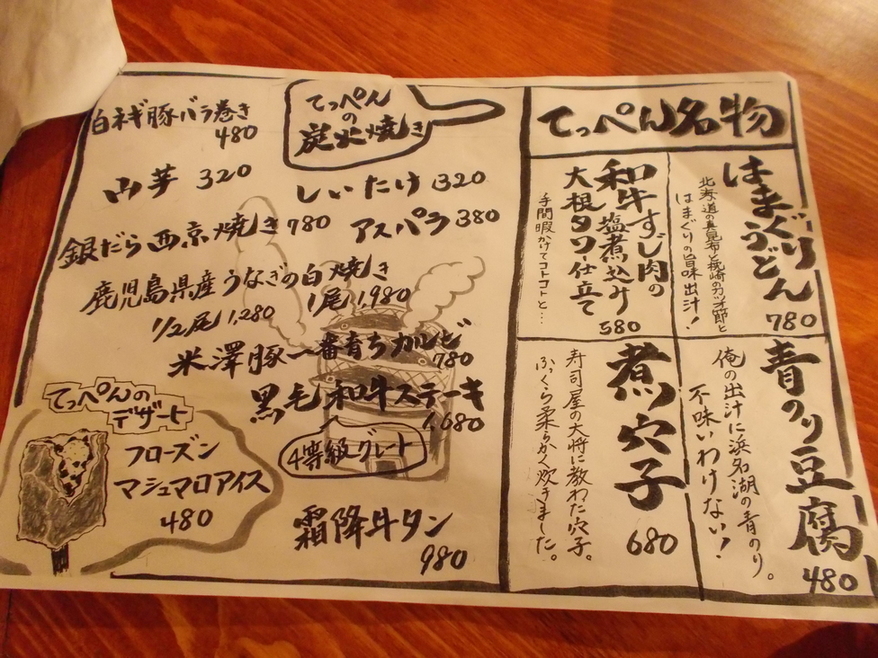 てっぺん名物
はまぐりうどん
北海道の真昆布と枕崎のカツオ節と
はまぐりの旨味出汁!
780
和牛すじ肉の
塩煮込み
大根タワー仕立て
手間暇かけてコトコトと…
580
青のり豆腐
俺の出汁に浜名湖の青のり。
不味いわけない!
480
煮穴子
寿司屋の大将に教わた穴子。
ふっくら柔らかく炊きました。
680
てっぺん
の
炭火焼き
白ネギ豚バラ巻き
480
山芋 320
しいたけ 320
銀だら西京焼き 780
アスパラ 380
鹿児島県産うなぎの白焼き
1/2尾 1,280
1尾 1,980
米澤豚一番育ちカルビ
780
黒毛和牛ステーキ
1,680
4等級グレート
霜降牛タン
980
てっぺんの
デザート
フローズン
マシュマロアイス
480